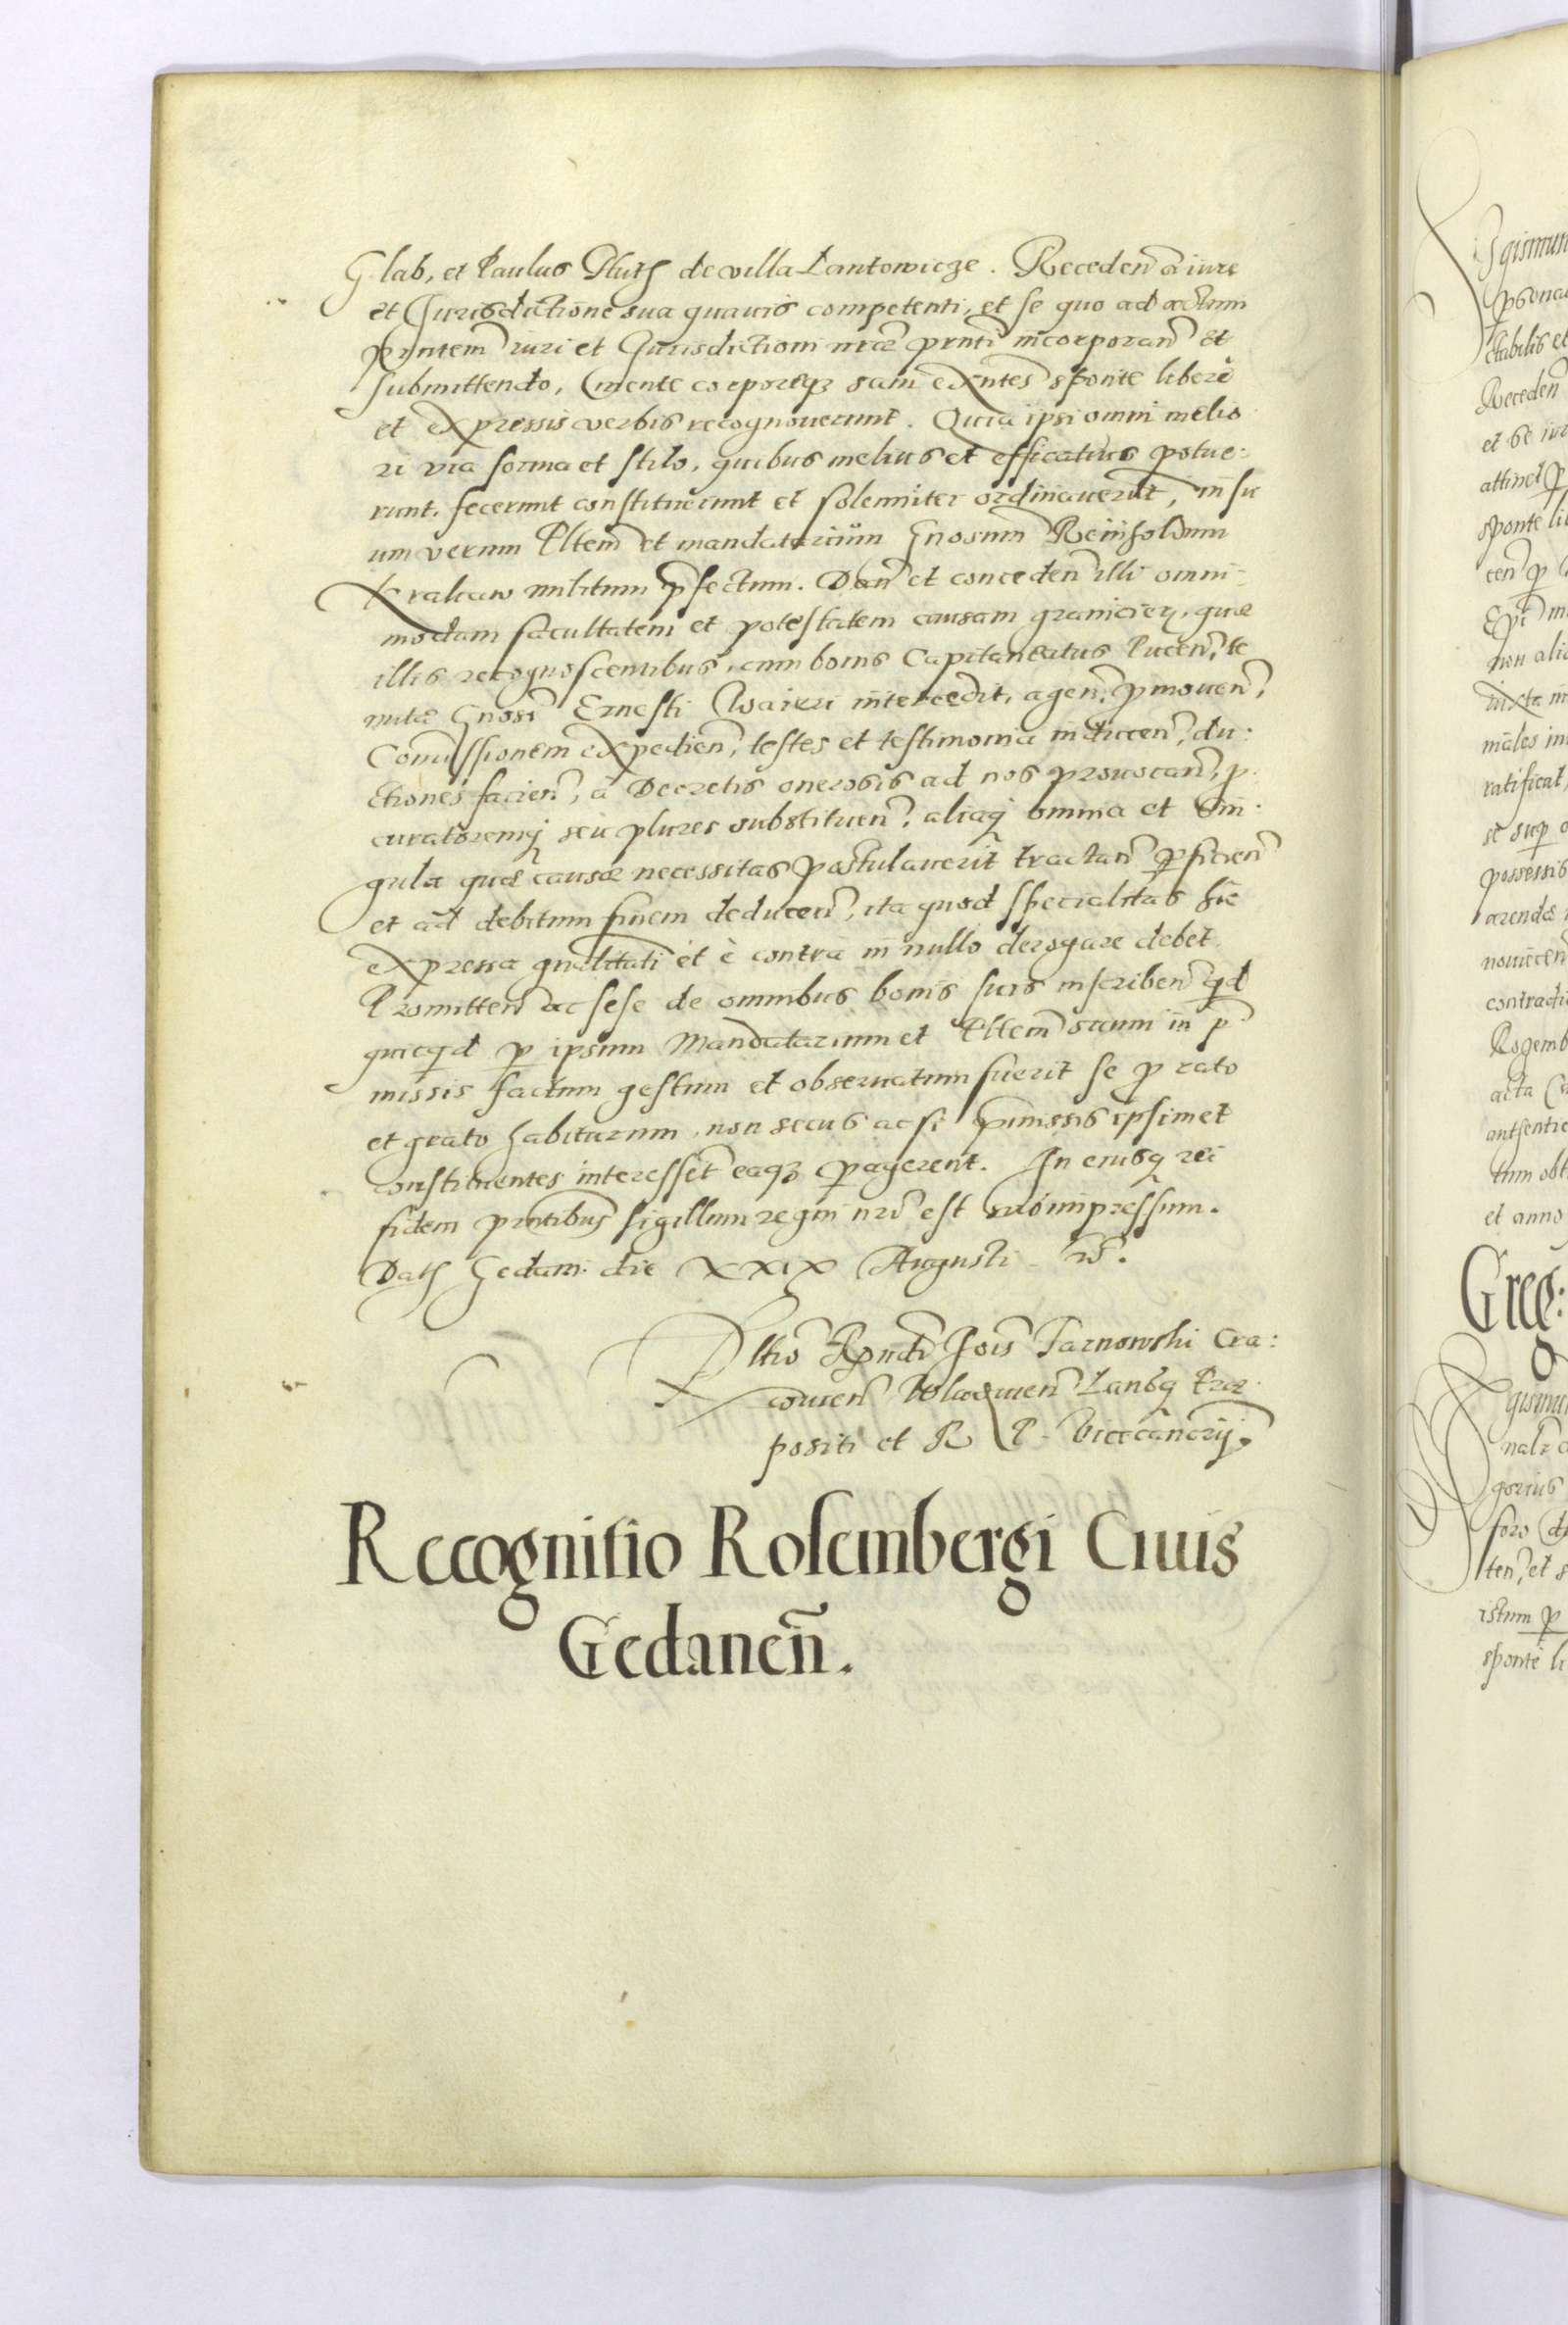 Glab, et Paulus Pluth de villa Lantowicze. Receden̄ a iure
et Jurisdictione sua quavis competenti, et se quo ad actum
prntem iuri et Jurisdictioni nrae prnti incorporan̄ et
submittendo, mente corporeqz sani exntes sponte libere
et expressis verbis recognoverunt. Quia ipsi omni melio
ri via forma et stilo, quibus melius et efficatius potue:
runt. fecerunt constituerunt et solenniter ordinaverūt, in su
um verum Pltem et mandatarium Gnosum Reinholdum
Krakaw militum p̄fectum. Dan̄ et conceden̄ illi omni
modam facultatem et potestatem causam granicier, quae
illis recognoscentibus, cum bonis Capitaneatus Pucen̄, te
nutae Gnosi Ernesti Waieri intercedit, agen̄, p̄moven̄,
Comissionem expedien̄, testes et testimonia inducen̄, du:
ctiones facien̄, a Decretis onerosis ad nos provocan̄, p
curatoremq seu plures substituen̄, aliaq omnia et sin
gula quae causae necessitas postulaverit tractan̄ pficien̄
et ad debitum finem deducen̄, ita quod specialitas hic
expressa gnrlitati et è contra in nullo derogare debet.
Promitten̄ ac sese de omnibus bonis suis inscriben̄ qd
quicqd p ipsum Mandatarium et Pltem suum in p̄
missis factum gestum et observatum fuerit se p rato
et grato habiturum, non secus ac si p̄missis ipsimet
constituentes interessent eaqz pagerent. In cuiusq rei
fidem prntibus sigillum regni nri est impressum.
Dath Gedani die XXIX Augusti
Rndi Jois Tarnowski Cra:
covien̄ Wladislavien̄ Lanbq Prae
positi et R P. Vicecancrij
Recognitio Rosembergi Civis
Gedanen̄.